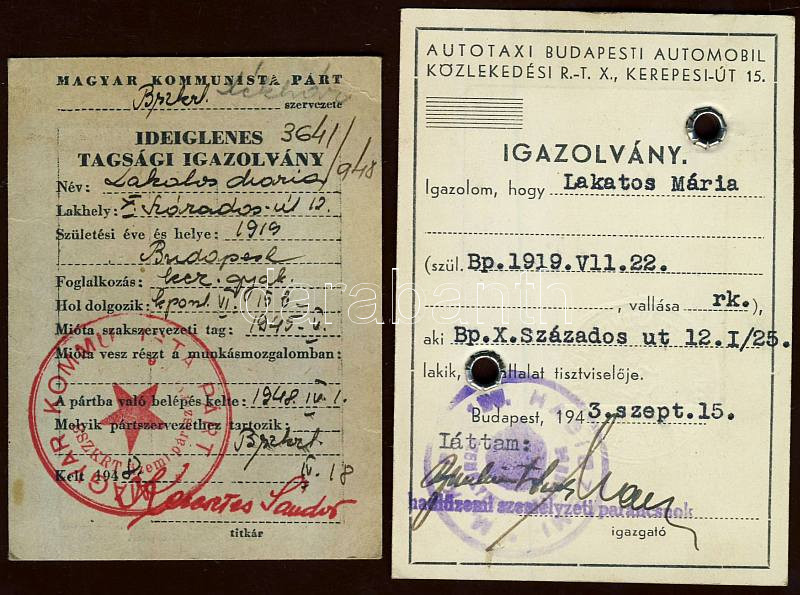 MAGYAR KOMMUNISTA PÁRT
Bpzkrt.
szervezete
IDEIGLENES 3641/
TAGSÁGI IGAZOLVÁNY /948
Név: Lakatos Maria
Lakhely: X. Százados-út 12.
Születési éve és helye: 1919
Budapest
Foglalkozás: ker. gyak.
Hol dolgozik: kpont VI.
Mióta szakszervezeti tag: 1945-
Mióta vesz részt a munkásmozgalomban:
A pártba való belépés kelte: 1948. IV. 1.
Melyik pártszervezethez tartozik:
Bpzkrt.
Kelt 1948 IV. 18
Sándor
titkár
MAGYAR KOMMUNISTA PÁRT
AUTOTAXI BUDAPESTI AUTOMOBIL
KÖZLEKEDÉSI R.-T. X., KEREPESI-ÚT 15.
IGAZOLVÁNY.
Igazolom, hogy Lakatos Mária
(szül. Bp.1919.VII.22.
, vallása rk.),
aki Bp.X.Százados ut 12.I/25.
lakik, vállalat tisztviselője.
Budapest, 1943.szept.15.
Láttam:
hadiüzemi személyzeti parancsnok
igazgató
darabanth